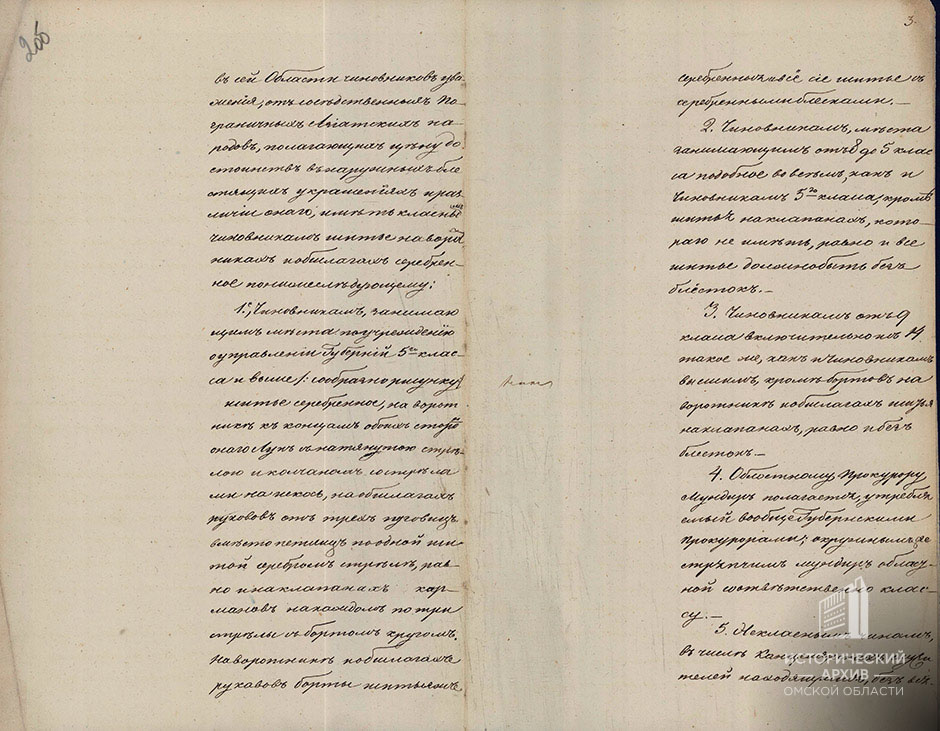 205
въ сей Области чиновниковъ ува
женія, отъ сосѣдственныхъ По
граничныхъ Азіатскихъ на
родовъ, полагающихъ цѣну до
стоинствъ въ наружныхъ бле
стящихъ украшеніяхъ
личіи онаго, имѣть класнымъ
чиновникамъ шитье на ворот
никахъ и обшлагахъ серебрен-
ное понижеслѣдующему:
1е, Чиновникамъ, занимаю
щимъ мѣста по учрежденію
о управленіи Губерній 5го клас-
са и выше /: сообразно рисунку/
шитье серебренное, на ворот
никѣ къ концамъ обѣихъ сторонъ
онаго Лукъ съ натянутою стрѣ-
лою и колчаномъ со стрѣла
ми на искось, на обшлагахъ
рукововъ отъ трехъ пуговицъ
вмѣсто петлицъ по одной ши
той серебромъ стрѣлѣ, рав-
но и на клапанахъ кар-
мановъ на каждомъ по три
стрѣлы съ бортомъ кругомъ.
На воротникѣ и обшлагахъ
рукавовъ борты шитые
3.
серебренныя и всё сіе шитье съ
серебренными блесками.—
2. Чиновникамъ, мѣста
занимающимъ отъ 8 до 5 клас
са подобное во всемъ, какъ и
Чиновникамъ 5го класа, кромѣ
шитья на клапанахъ, кото-
раго не имѣть, равно и все
шитье должно быть безъ
блёстокъ.—
3. Чиновникамъ отъ 9
класа включительно по 14
такое же, какъ и Чиновникамъ
высшимъ, кромѣ бортовъ на
воротникѣ и обшлагахъ и шитья
на клапанахъ, равно и безъ
блестокъ.—
4. Областному Прокурору
Мундиръ полагается, употребля
емый вообще Губернскими
Прокурорами; окружнымъ же
стряпчимъ мундиръ облас
ной соотвѣтственно клас-
су.—
5. Некласнымъ чинамъ,
въ числѣ Канцелярскихъ служи
телей находящимся, безъ
ИСТОРИЧЕСКИЙ
АРХИВ
ОМСКОЙ ОБЛАСТИ